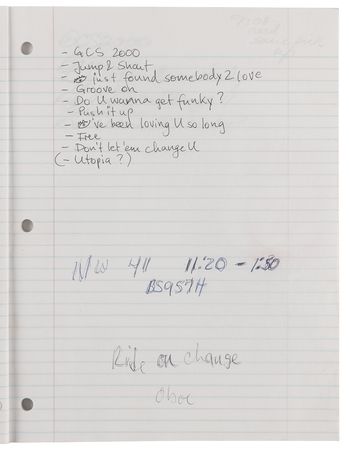 - GCS 2000
- Jump 2 Shout
- just found somebody 2 love
- Groove on
- Do U wanna get funky?
- Push it up
- I've been loving U so long
- Free
- Don't let 'em change U
(- Utopia?)
NW 411 11:20 - 1:30
BS957H
Ride on change
oboe